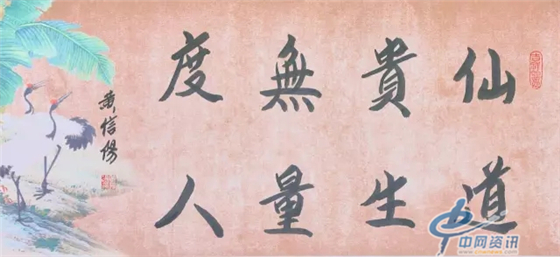 仙道
貴生
無量
度人
黄信傷
中网资讯